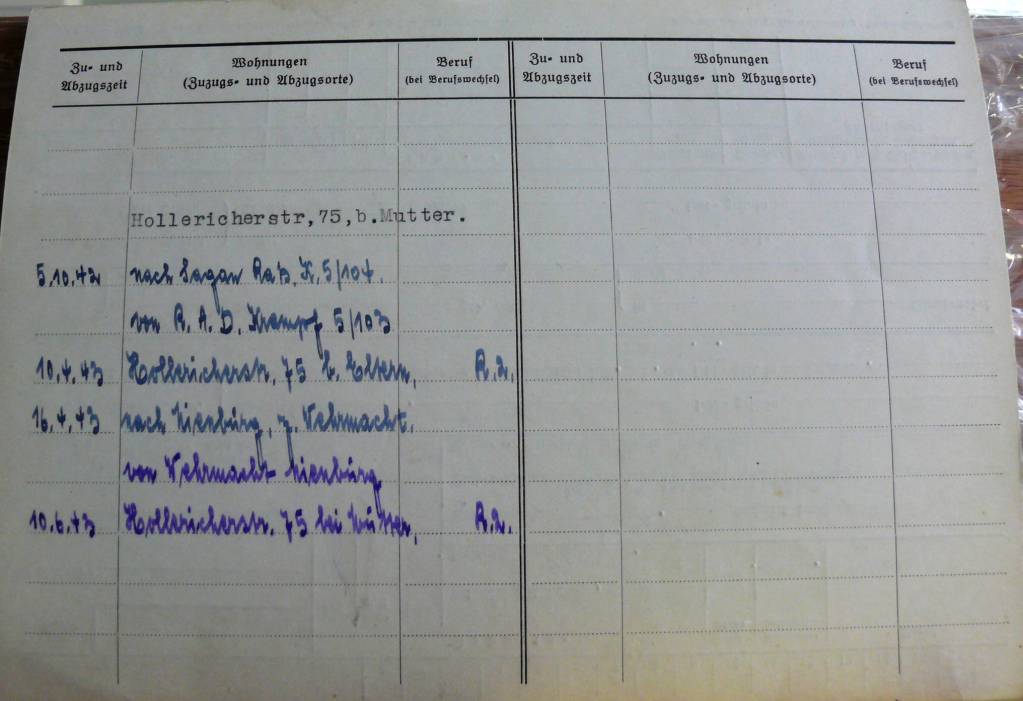 Zu- und Abzugszeit
Wohnungen
(Zuzugs- und Abzugsorte)
Beruf
(bei Berufswechsel)
Zu- und Abzugszeit
Wohnungen
(Zuzugs- und Abzugsorte)
Beruf
(bei Berufswechsel)
Hollericherstr,75,b.Mutter.
5.10.42 nach Sagan Rab. K. 5/104.
von R. A. D. 5/103
10.4.43 Hollericherstr. 75 b. Eltern, R.2.
16.4.43 nach Nienburg, z. Wehrmacht.
von Wehrmacht Nienburg
10.6.43 Hollericherstr. 75 bei Mutter, R.2.